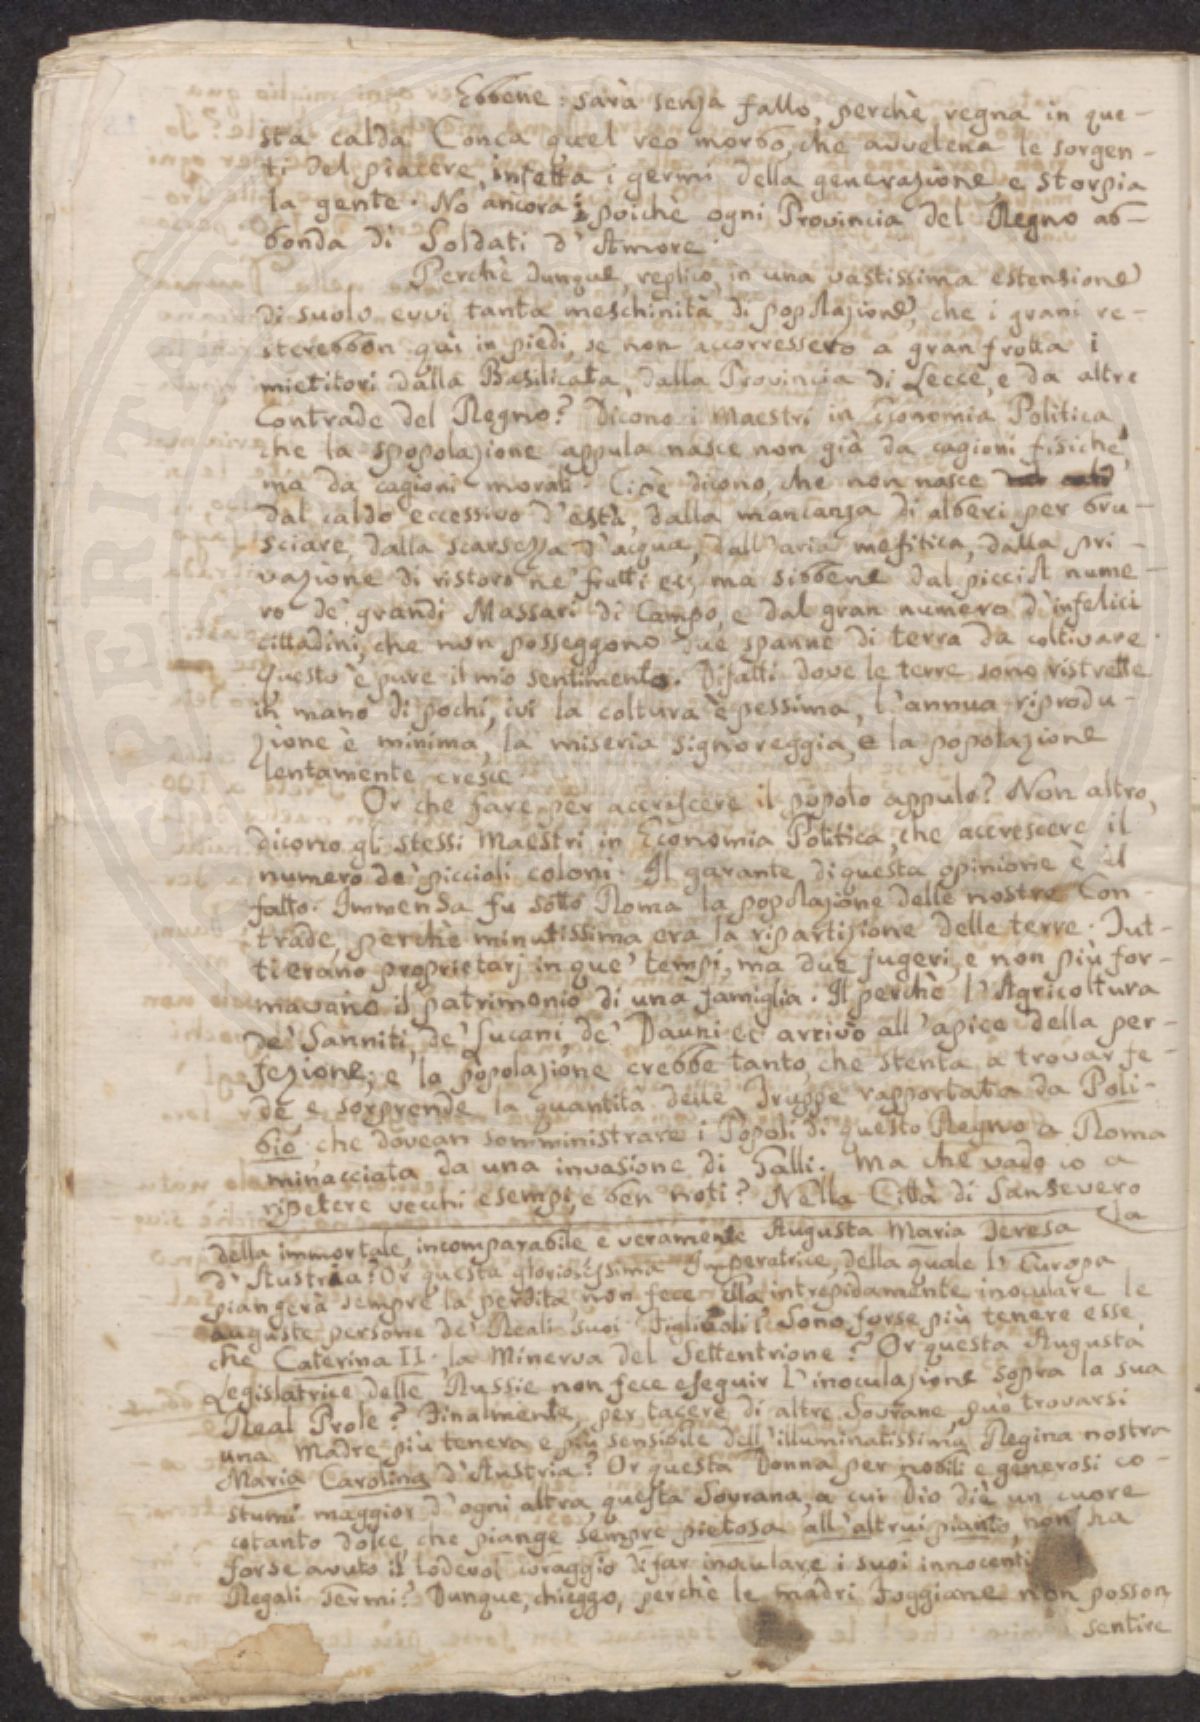 Ebbene: sarà senza fallo, perchè regna in que-
sta calda Conca quel reo morbo, che avvelena le sorgen-
ti del piacere, infetta i germi della generazione e storpia
la gente. No ancora; poichè ogni Provincia del Regno ab-
bonda di Soldati d'Amore.
Perchè dunque, replico, in una vastissima estensione
di suolo evvi tanta meschinità di popolazione, che i grani re-
sterebbon quì in piedi, se non accorressero a gran frotta i
mietitori dalla Basilicata, dalla Provincia di Lecce, e da altre
Contrade del Regno? Dicono i Maestri in Economia Politica,
che la spopolazione appula nasce non già da cagioni fisiche,
ma da cagioni morali. Cioè dicono, che non nasce
dal caldo eccessivo d'està, dalla mancanza di alberi per bru-
sciare, dalla scarsezza d'acqua, dall'aria mefitica, dalla pri-
vazione di ristoro ne' frutti ec; ma sibbene dal picciol nume-
ro de' grandi Massari di Campo, e dal gran numero d'infelici
cittadini, che non posseggono due spanne di terra da coltivare.
Questo è pure il mio sentimento. Difatti dove le terre sono ristrette
in mano di pochi, ivi la coltura è pessima, l'annua riprodu-
zione è minima, la miseria signoreggia, e la popolazione
lentamente cresce.
Or che fare per accrescere il popolo appulo? Non altro,
dicono gli stessi Maestri in Economia Politica, che accrescere il
numero de' piccioli coloni. Il garante di questa opinione è il
fatto. Immensa fu sotto Roma la popolazione delle nostre Con-
trade, perchè minutissima era la ripartizione delle terre. Tut-
ti erano proprietarj in que' tempi, ma due jugeri, e non più for-
mavano il patrimonio di una famiglia. Il perchè l'Agricoltura
de' Sanniti, de' Lucani, de' Dauni ec arrivò all'apice della per-
fezione; e la popolazione crebbe tanto, che stenta a trovar fe-
de, e sorprende la quantità delle Truppe rapportata da Poli-
bio, che dovean somministrare i Popoli di questo Regno a Roma
minacciata da una invasione di Galli. Ma che vado io a
ripetere vecchi esempi, e ben noti? Nella Città di Sansevero
la
della immortale, incomparabile e veramente Augusta Maria Teresa
d'Austria? Or questa gloriosissima Imperatrice, della quale l'Europa
piangerà sempre la perdita, non fece ella intrepidamente inoculare le
auguste persone de' Reali suoi Figliuoli? Sono forse più tenere esse,
che Caterina II. la Minerva del Settentrione? Or questa Augusta
Legislatrice delle Russie non fece eseguir l'inoculazione sopra la sua
Real Prole? Finalmente, per tacere di altre Sovrane, può trovarsi
una Madre più tenera e più sensibile dell'illuminatissima Regina nostra
Maria Carolina d'Austria? Or questa Donna per nobili e generosi co-
stumi maggior d'ogni altra, questa Sovrana, a cui Dio diè un cuore
cotanto dolce, che piange sempre pietosa all'altrui pianto, non ha
forse avuto il lodevol coraggio di far inoculare i suoi innocenti
Regali Germi? Dunque, chieggo, perchè le madri Foggiane non posson
sentire